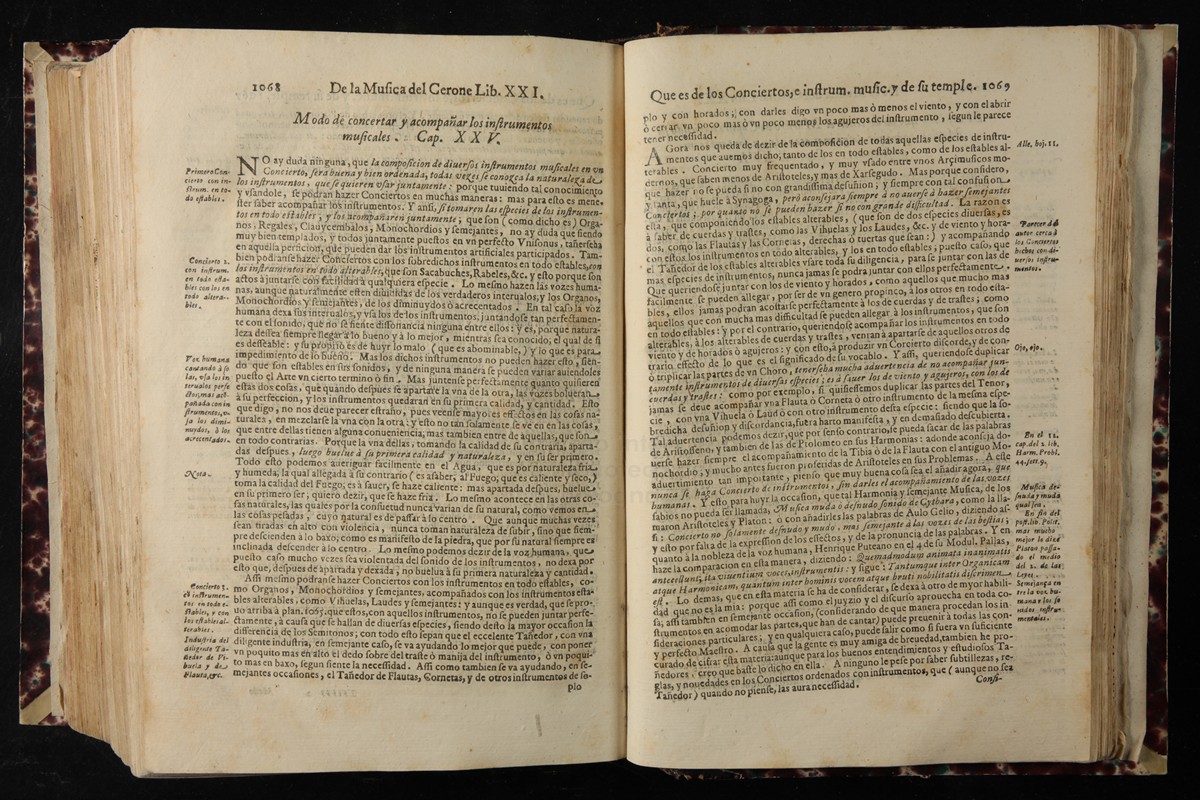 1068 De la Musica del Cerone Lib. XXI.
Modo de concertar y acompañar los instrumentos
musicales. Cap. XXV.
Primero Con-
cierto con in-
strum. en to-
do estables.
NO ay duda ninguna, que la composicion de diuersos instrumentos musicales en vn
Concierto, sera buena y bien ordenada, todas vezes se conozca la naturaleza de
los instrumentos, que se quieren vsar juntamente: porque tuuiendo tal conocimiento
y vsandole, se podran hazer Conciertos en muchas maneras: mas para esto es mene-
ster saber acompañar los instrumentos. Y ansi, si tomaren las especies de los instrumen-
tos en todo estables, y los acompañaren juntamente; que son (como dicho es) Orga-
nos, Regales, Clauycembalos, Monochordios y semejantes, no ay duda que siendo
muy bien templados, y todos juntamente puestos en vn perfecto Vnisonus, tañerseha
en aquella perficion, que pueden dar los instrumentos artificiales participados. Tam-
Concierto 2.
con instrum.
en todo esta-
bles con los en
todo altera-
bles.
bien podranse hazer Conciertos con los sobredichos instrumentos en todo estables, con
los instrumentos en todo alterables, que son Sacabuches, Rabeles, &c. y esto porque son
actos a juntarse con facilidad à qualquiera especie. Lo mesmo hazen las vozes huma-
nas, aunque naturalmente esten diuididas de los verdaderos interualos; y los Organos,
Monochordios y semejantes, de los diminuydos ò acrecentados. En tal caso la voz
humana dexa sus interualos, y vsa los de los instrumentos, juntandose tan perfectamen-
te con el sonido, que no se siente dissonancia ninguna entre ellos: y es, porque natura-
leza dessea siempre llegar à lo bueno y à lo mejor, mientras sea conocido, el qual de si
es desseable: y su proprio es de huyr lo malo (que es abominable,) y lo que es para
Voz humana
cantando à so
las, vsa los in
terualos perfe
ctos, mas aco-
pañada con in
strumentos, v-
sa los dimi-
nuydos, ò los
acrecentados.
impedimiento de lo bueno. Mas los dichos instrumentos no pueden hazer esto, sien-
do que son estables en sus sonidos, y de ninguna manera se pueden variar auiendoles
puesto el Arte vn cierto termino ò fin. Mas juntense perfectamente quanto quisieren
estas dos cosas, que quando despues se apartare la vna de la otra, las vozes bolueran
à su perfeccion, y los instrumentos quedaran en su primera calidad, y cantidad. Esto
que digo, no nos deue parecer estraño, pues veense mayores effectos en las cosas na-
turales, en mezclarse la vna con la otra: y esto no tan solamente se ve en en las cosas,
que entre dellas tienen alguna conueniencia, mas tambien entre de aquellas, que son
en todo contrarias. Porque la vna dellas, tomando la calidad de su contraria, aparta-
das despues, luego buelue à su primera calidad y naturaleza, y en su ser primero.
Nota.
Todo esto podemos aueriguar facilmente en el Agua, que es por naturaleza fria
y humeda; la qual allegada à su contrario (es asaber, al Fuego; que es caliente y seco,)
toma la calidad del Fuego; es à sauer, se haze caliente: mas apartada despues, buelue
en su primero ser, quiero dezir, que se haze fria. Lo mesmo acontece en las otras co-
sas naturales, las quales por la consuetud nunca varian de su natural, como vemos en
las cosas pesadas, cuyo natural es de passar à lo centro. Que aunque muchas vezes
sean tiradas en alto con violencia, nunca toman naturaleza de subir, sino que siem-
pre descienden à lo baxo; como es manifiesto de la piedra, que por su natural siempre es
inclinada descender à lo centro. Lo mesmo podemos dezir de la voz humana, que
puesto caso mucho vezes sea violentada del sonido de los instrumentos, no dexa por
esto que, despues de apartada y dexada, no buelua à su primera naturaleza y cantidad.
Concierto 3.
cõ instrumen-
tos en todo e-
stables, y con
los estables al-
terables.
Industria del
diligente Ta-
ñedor de Vi-
huela y de
Flauta, &c.
Assi mesmo podranse hazer Conciertos con los instrumentos en todo estables, co-
mo Organos, Monochordios y semejantes, acompañados con los instrumentos esta-
bles alterables, como Vihuelas, Laudes y semejantes: y aunque es verdad, que se pro-
uo arriba à plan. 1063, que estos, con aquellos instrumentos, no se pueden juntar perfe-
ctamente, à causa que se hallan de diuersas especies, siendo desto la mayor occasion la
differencia de los Semitonos; con todo esto sepan que el eccelente Tañedor, con vna
diligente industria, en semejante caso, se va ayudando lo mejor que puede, con poner
vn poquito mas en alto el dedo sobre del traste ò manija del instrumento, ò vn poqui-
to mas en baxo, segun siente la necessidad. Assi como tambien se va ayudando, en se-
mejantes occasiones, el Tañedor de Flautas, Cornetas, y de otros instrumentos de so-
plo
Que es de los Conciertos, e instrum. music. y de su temple. 1069
plo y con horados; con darles digo vn poco mas ò menos el viento, y con el abrir
ò cerrar vn poco mas ò vn poco menos los agujeros del instrumento, segun le parece
tener necessidad.
Alle. boj. 11.
AGora nos queda de dezir de la composicion de todas aquellas especies de instru-
mentos que auemos dicho; tanto de los en todo estables, como de los estables al-
terables. Concierto muy frequentado, y muy vsado entre vnos Arçimusicos mo-
dernos, que saben menos de Aristoteles, y mas de Xarsegudo. Mas porque considero,
que hazer no se pueda si no con grandissima desunion; y siempre con tal confusion,
y tanta, que huele à Synagoga, però aconsejara siempre à no auerse à hazer semejantes
Parecer del
autor cerca à
los Conciertos
hechos con di-
uersos instru-
mentos.
Conciertos; por quanto no se pueden hazer si no con grande difficultad. La razon es
esta, que componiendo los estables alterables, (que son de dos especies diuersas, es
à saber de cuerdas y trastes, como las Vihuelas y los Laudes, &c. y de viento y hora-
dos, como las Flautas y las Cornetas, derechas ò tuertas que sean;) y acompañando
con estos los instrumentos en todo alterables, y los en todo estables; puesto caso, que
el Tañedor de los estables alterables vsare toda su diligencia, para se juntar con las de
mas especies de instrumentos, nunca jamas se podra juntar con ellos perfectamente.
Que queriendose juntar con los de viento y horados, como aquellos que mucho mas
facilmente se pueden allegar, por ser de vn genero propinco, à los otros en todo esta-
bles, ellos jamas podran acostarse perfectamente à los de cuerdas y de trastes; como
aquellos que con mucha mas difficultad se pueden allegar à los instrumentos, que son
en todo estables: y por el contrario, queriendose acompañar los instrumentos en todo
alterables, à los alterables de cuerdas y trastes, venran à apartarse de aquellos otros de
Ojo, ojo.
viento y de horados ò agujeros: y con esto, à produzir vn Corcierto discorde, y de con-
trario, effecto de lo que es el significado de su vocablo. Y assi, queriendose duplicar
ò triplicar las partes de vn Choro, tenerseha mucha aduertencia de no acompañar jun-
tamente instrumentos de diuersas especies; es à sauer los de viento y agujeros, con los de
cuerdas y trastes: como por exemplo, si quisiessemos duplicar las partes del Tenor,
jamas se deue acompañar vna Flauta ò Corneta ò otro instrumento de la mesma espe-
cie, con vna Vihuela ò Laud ò con otro instrumento desta especie: siendo que la so-
bredicha desunion y discordancia, fuera harto manifesta, y en demasiado descubierta.
En el 12.
cap. del 2. lib.
Harm. Probl.
44. sect. 9.
Tal aduertencia podemos dezir, que por senso contrario, le pueda sacar de las palabras
de Aristosseno, y tambien de las de Ptolomeo en sus Harmonias: adonde aconseja do-
uerse hazer siempre el acompañamiento de la Tibia ò de la Flauta con el antiguo Mo-
nochordio, y mucho antes fueron proferidas de Aristoteles en sus Problemas. A este
aduertimiento tan importante, pienso que muy buena cosa sea el añadir agora, que
nunca se haga Concierto de instrumentos, sin darles el acompañamiento de las vozes
Musica de-
snuda y muda
qual sea.
humanas. Y esto para huyr la occasion, que tal Harmonia y semejante Musica, de los
sabios no pueda ser llamada, Musica muda ò desnudo sonido de Cythara, como la lla-
En fin del
post. lib. Polit.
mas mucho
mejor lo dize
Platon passa-
do el medio
del 2. de las
Leyes.
maron Aristoteles y Platon: ò con añadirles las palabras de Aulo Gelio, diziendo as-
si: Concierto no solamente desnudo y mudo, mas semejante à las vozes de las bestias;
y esto por falta de la expression de los effectos, y de la pronuncia de las palabras. Y en
quanto à la nobleza de la voz humana, Henrique Puteano en el 4 de su Modul. Pallas,
haze la comparacion en esta manera, diziendo: Quemadmodum animata inanimatis
Semejança en
tre la voz hu-
mana e los so-
nidos instru-
mentales.
antecellunt, ita viuentium voces, instrumentis: y sigue: Tantumque inter Organicam
atque Harmonicam, quantum inter hominis vocem atque bruti nobilitatis discrimen
est. Lo demas, que en esta materia se ha de considerar, se dexa à otro de mayor habili-
dad que no es la mia: porque assi como el juyzio y el discurso aprouecha en toda co-
sa; assi tambien en semejante occasion, (considerando de que manera procedan los in-
strumentos en acomodar las partes, que han de cantar) puede preuenir à todas las con-
sideraciones particulares; y en qualquiera caso, puede salir como si fuera vn suficiente
y perfecto Maestro. A causa que la gente es muy amiga de breuedad, tambien he pro-
curado de cifrar esta materia: aunque para los buenos entendimientos y estudiosos Ta-
ñedores, creo que baste lo dicho en ella. A ninguno le pese por saber subtillezas, re-
glas, y nouedades en los Conciertos ordenados con instrumentos, que (aunque no sea
Tañedor) quando no piense, las aura necessidad.
Consi-